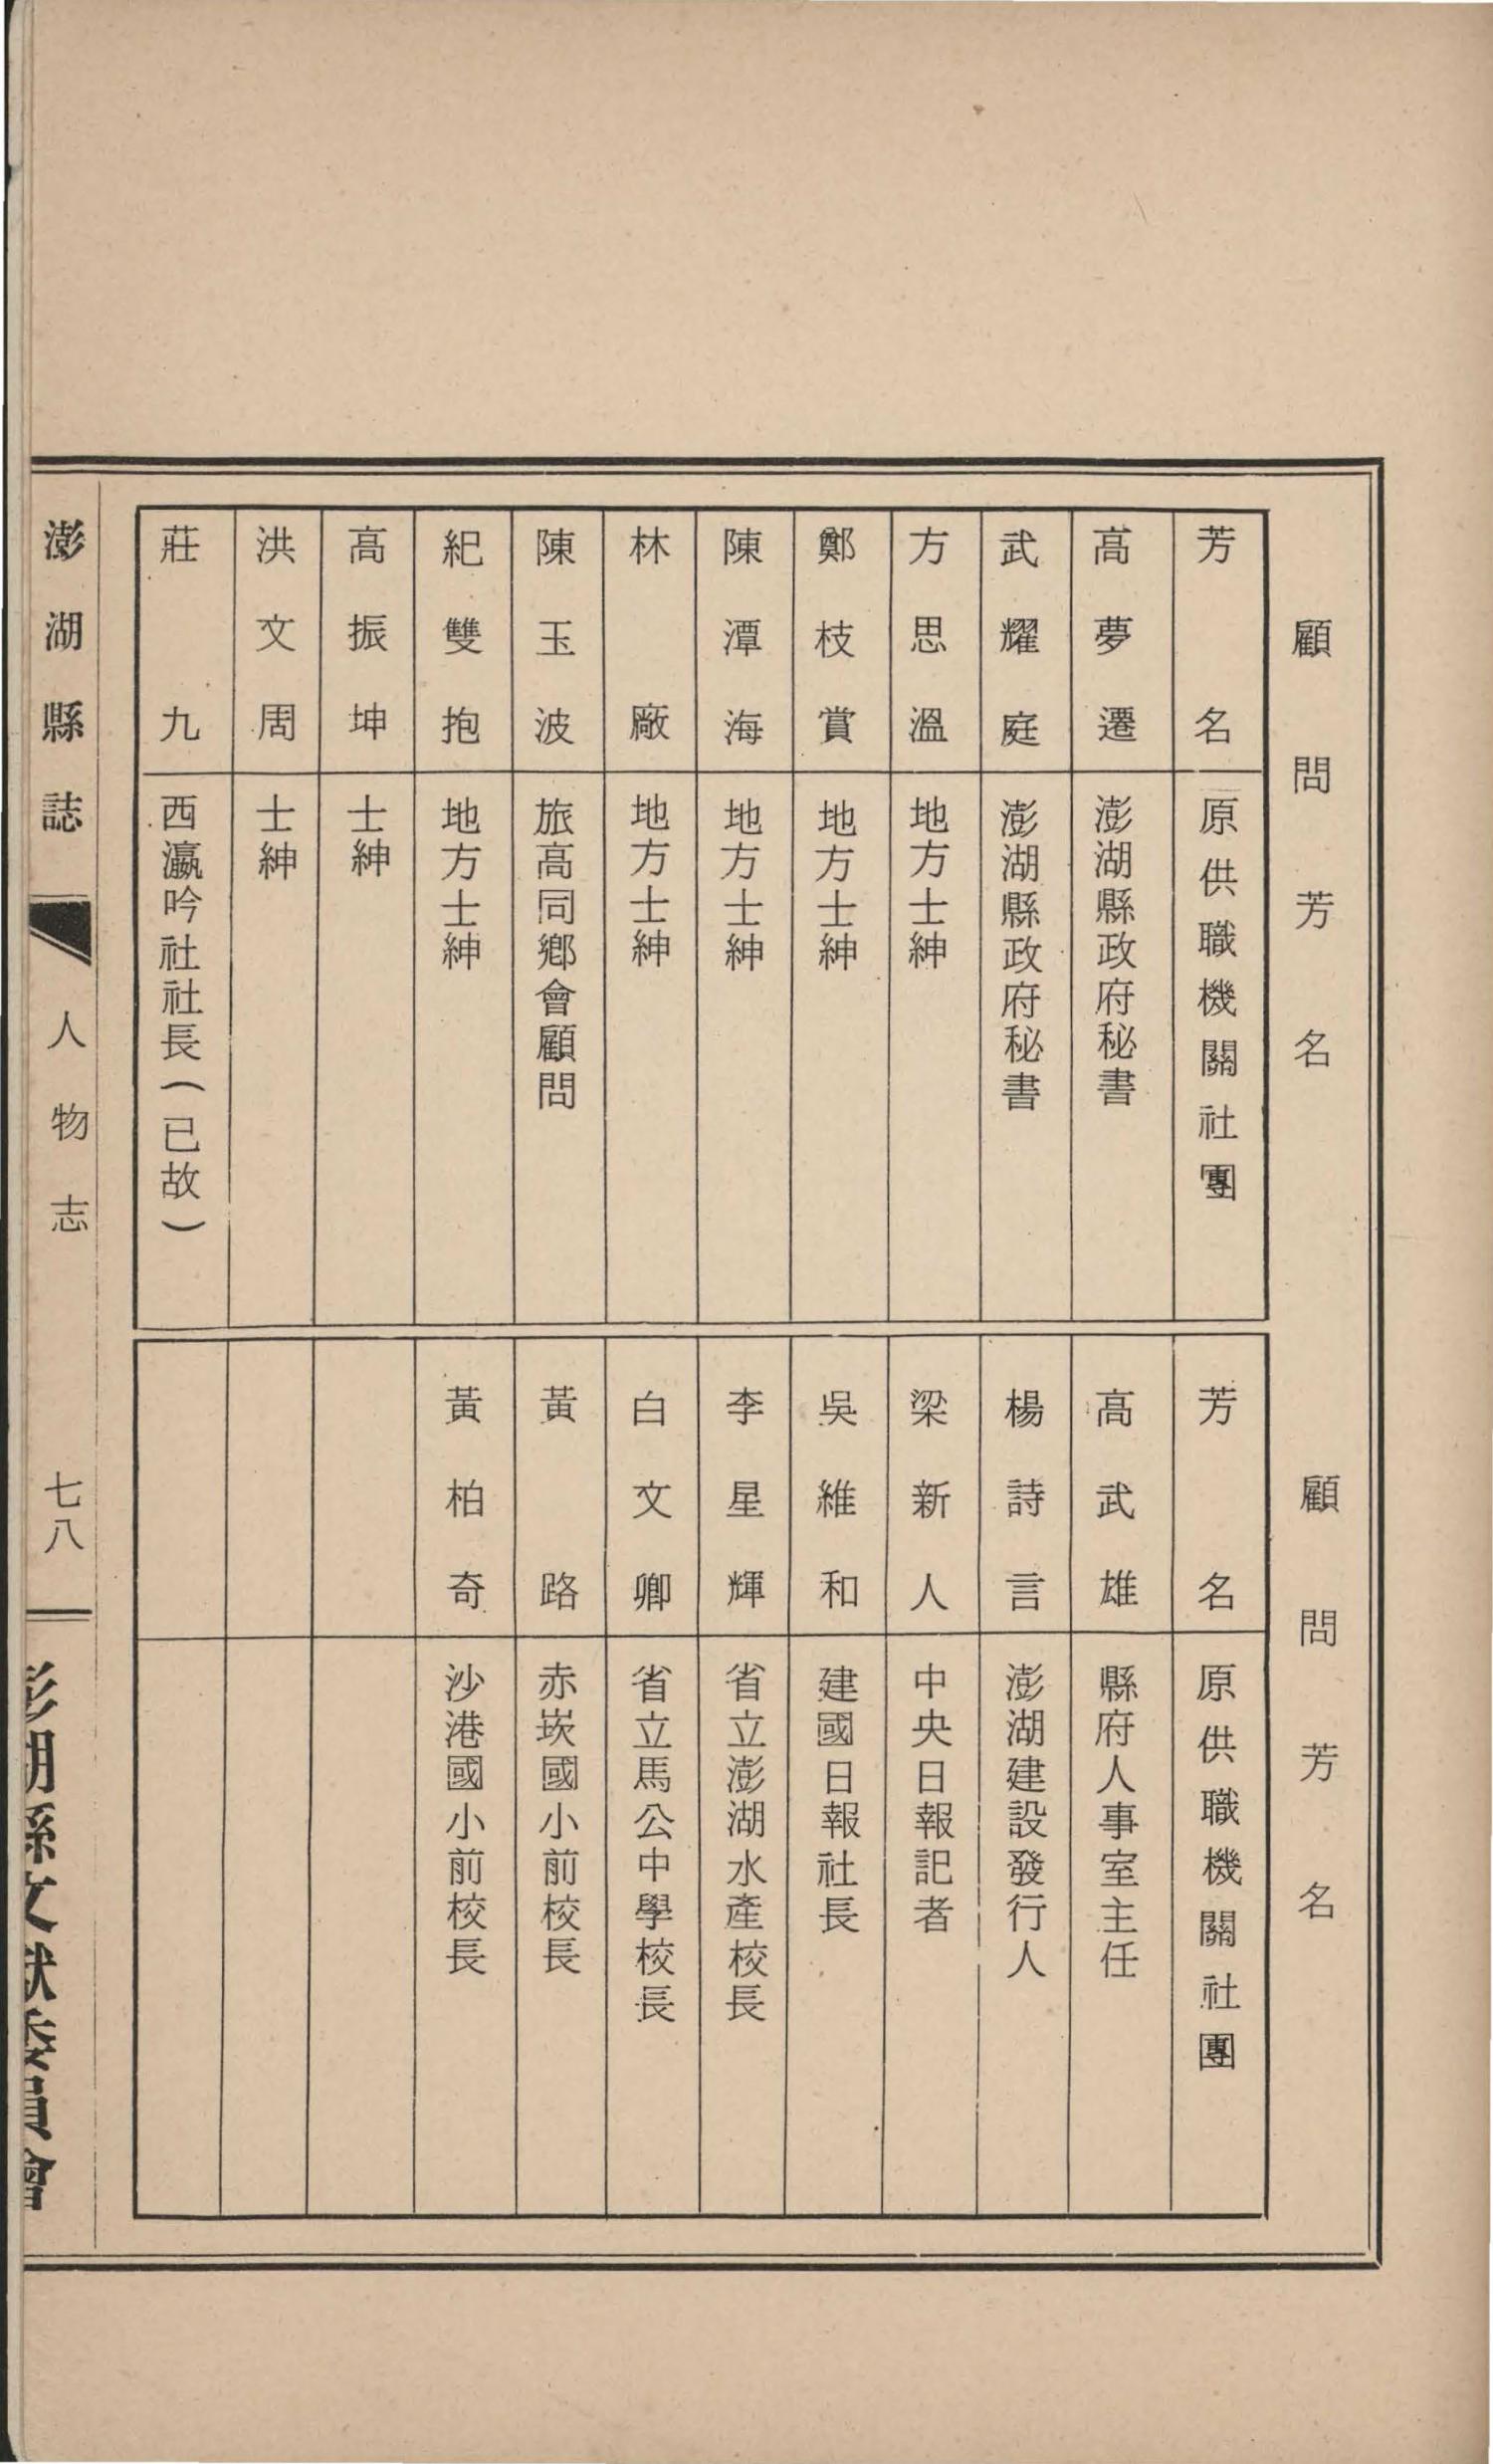 顧問芳名
芳名 原供職機關社團
高夢遷 澎湖縣政府秘書
武耀庭 澎湖縣政府秘書
方思溫 地方士紳
鄭枝賞 地方士紳
陳潭海 地方士紳
林廠 地方士紳
陳玉波 旅高同鄉會顧問
紀雙抱 地方士紳
高振坤 士紳
洪文周 士紳
莊九 西瀛吟社社長(已故)
顧問芳名
芳名 原供職機關社團
高武雄 縣府人事室主任
楊詩言 澎湖建設發行人
梁新人 中央日報記者
吳維和 建國日報社長
李星輝 省立澎湖水產校長
白文卿 省立馬公中學校長
黃路 赤崁國小前校長
黃柏奇 沙港國小前校長
澎湖縣誌 人物志 七八 澎湖縣文獻委員會